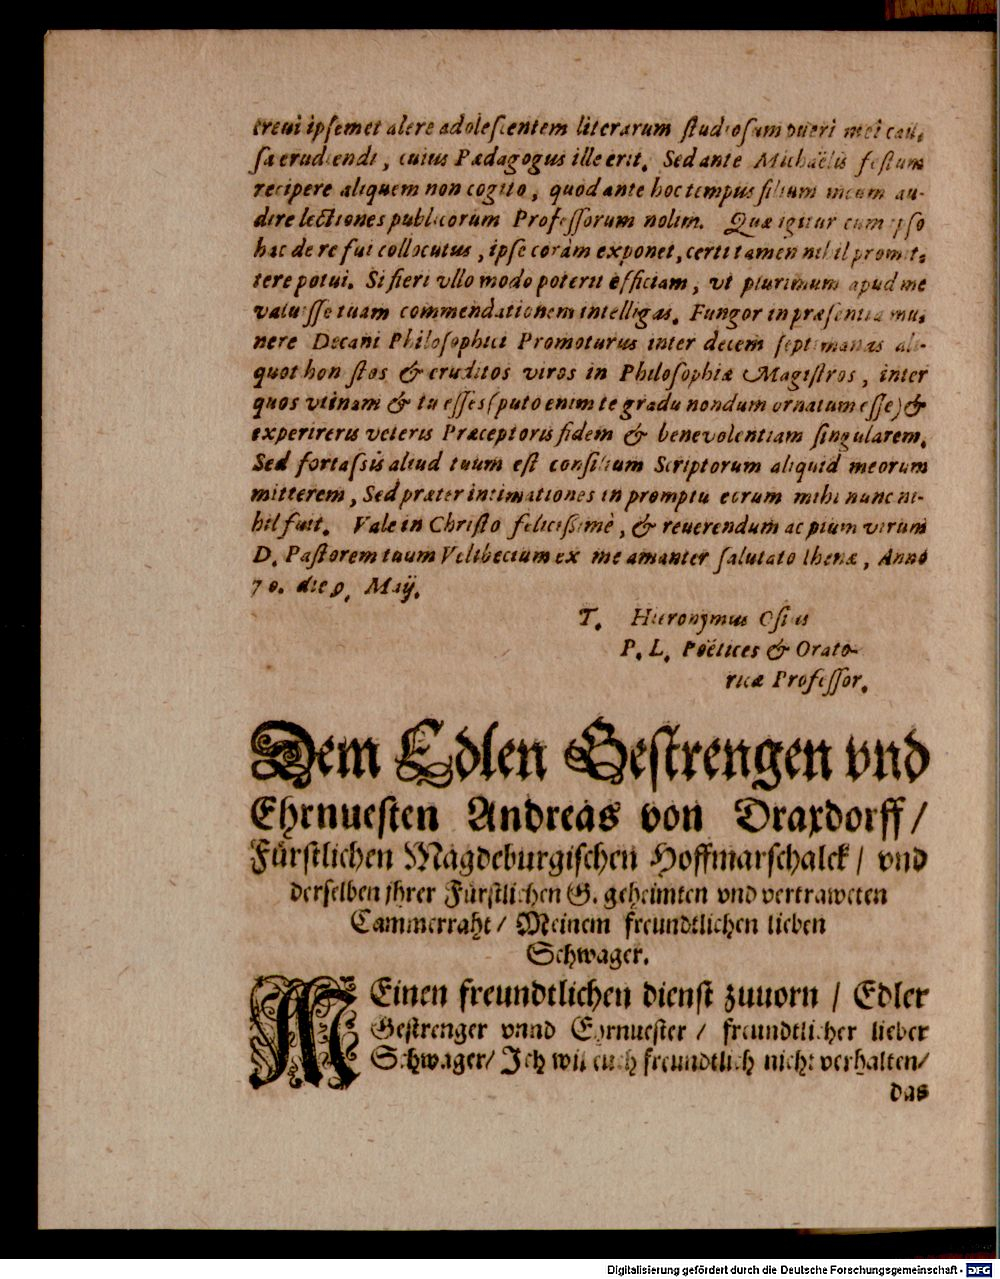 creui ipsemet alere adolescentem literarum studiosum pueri mei cau-
sa erudiendi, cuius Pædagogus ille erit. Sed ante Michaëlis festum
recipere aliquem non cogito, quod ante hoc tempus filium meum au-
dire lectiones publicorum Professorum nolim. Quæ igitur cum ipso
hac de re fui collocutus, ipse coràm exponet, certi tamen nihil promit-
tere potui. Si fieri vllo modo poterit efficiam, vt plurimum apud me
valuisse tuam commendationem intelligas. Fungor in præsentia mu-
nere Decani Philosophici Promoturus inter decem septimanas ali-
quot honestos & eruditos viros in Philosophiæ Magistros, inter
quos vtinam & tu esses (puto enim te gradu nondum ornatum esse) &
experireris veteris Præceptoris fidem & benevolentiam singularem.
Sed fortaßis aliud tuum est consilium Scriptorum aliquid meorum
mitterem, Sed præter intimationes in promptu eorum mihi nunc ni-
hil fuit. Vale in Christo felicißimè, & reuerendum ac pium virum
D. Pastorem tuum Veltbecium ex me amanter salutato Ihenæ, Anno
70. die 9. Maij.
T. Hieronymus Osius
P. L. Poëtices & Orato-
riæ Professor.
Dem Edlen Gestrengen vnd
Ehrnuesten Andreas von Draxdorff /
Fürstlichen Magdeburgischen Hoffmarschalck / vnd
derselben jhrer Fürstlichen G. geheimten vnd vertraweten
Cammerraht / Meinem freundtlichen lieben
Schwager.
MEinen freundtlichen dienst zuuorn / Edler
Gestrenger vnnd Ehrnuester / freundtlicher lieber
Schwager / Ich wil euch freundtlich nicht verhalten /
das
Digitalisierung gefördert durch die Deutsche Forschungsgemeinschaft - DFG